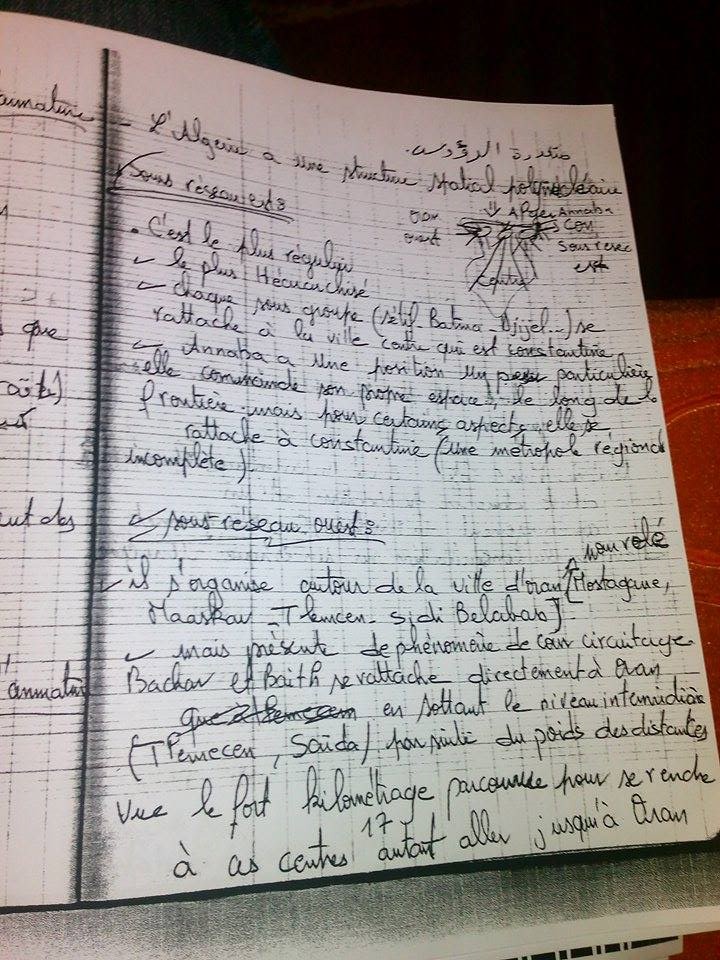 armature
متعددة الرؤوس.
- L'Algerie a une structure spatial polynucléaire
Sous réseau est :
oran
ouest
⇓ Alger Annaba
Con
Sous resec
est
Centre
• C'est le plus régulier
✓ le plus Hécucuchisé
✓ chaque sous groupe (sétif Batma - Djijel...) se
rattache à la ville centre qui est constantine
✓ Annaba a une position un peu particulière
elle commande son propre espace, le long de la
frontière mais pour certains aspects, elle se
rattache à constantine (une métropole régional
incomplète)
que
sous réseau ouest :
ut des
non relé
✓ il s'organise autour de la ville d'oran [Mostagane,
Maaskar - Tlemcen - Sidi Belabab]
✓ mais présente de phénomène de cour circuitage
armature
Bachar et Baith se rattache directement à Oran
en sottant le niveau intermidière
(Tlemecen, Saïda) par suite du poids des distantes
vue le fort kilométrage parcourue pour se rendre
à ces centres autant aller jusqu'à Oran
17